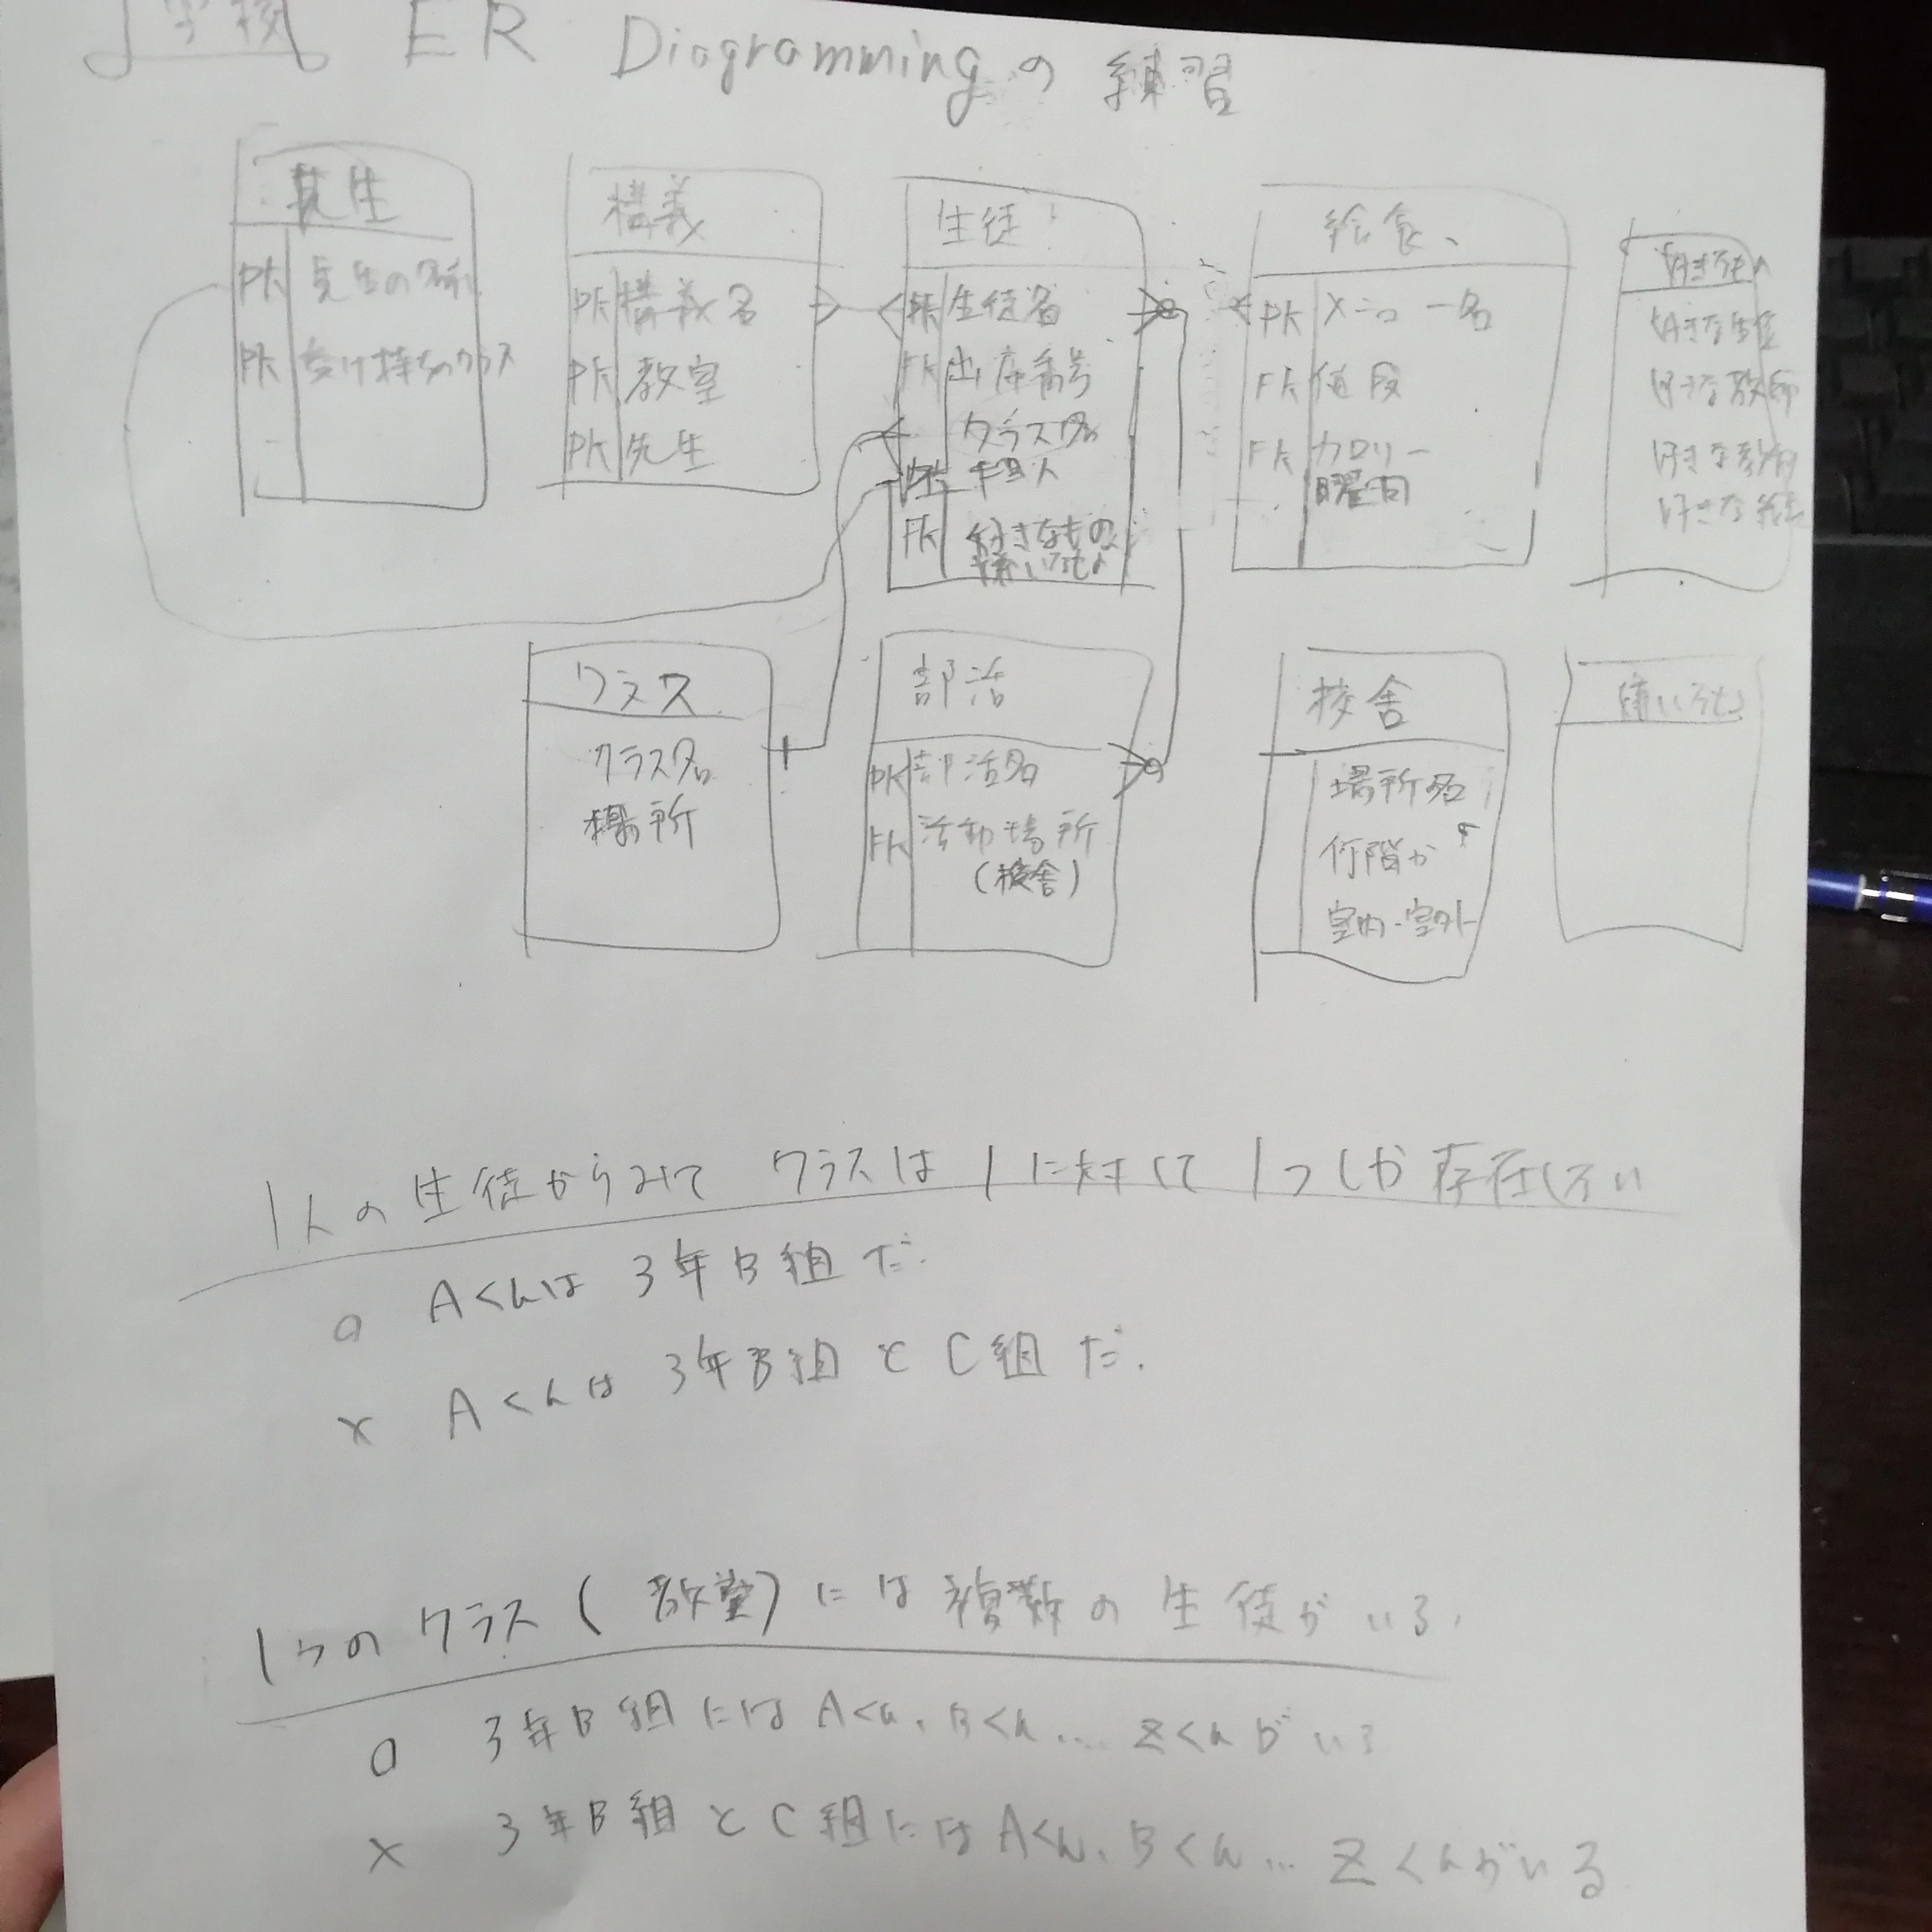 学校 ER Diagrammingの練習
先生
PK 先生の名前
PK 受け持ちクラス
構義
PK 構義名
PK 教室
PK 先生
生徒
PK 生徒名
FK 出席番号
クラス名
FK
FK 好きなもの
嫌いなもの
給食
PK メニュー名
FK 値段
FK カロリー
曜日
好きなもの
好きな生徒
好きな教師
好きな教科
好きな給食
クラス
クラス名
場所
部活
PK 部活名
FK 活動場所
(校舎)
校舎
場所名
何階か
室内・室外
嫌いなもの
1人の生徒からみて クラスは 1に対して 1つしか存在しない
○ Aくんは 3年B組だ.
× Aくんは 3年B組とC組だ.
1つのクラス(教室)には複数の生徒がいる.
○ 3年B組にはAくん、Bくん... Zくんがいる
× 3年B組とC組にはAくん、Bくん... Zくんがいる